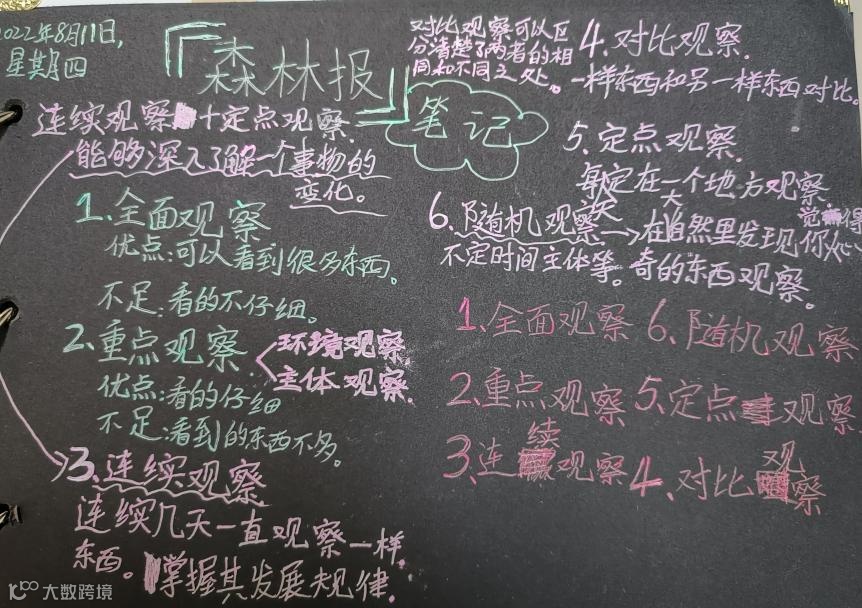 2022年8月11日,
星期四
森林报
笔记
连续观察+定点观察.
能够深入了解一个事物的
变化。
1.全面观察
优点:可以看到很多东西。
不足:看的不仔细。
2.重点观察
环境观察
主体观察.
优点:看的仔细
不足:看到的东西不多。
3.连续观察
连续几天一直观察一样
东西。掌握其发展规律.
对比观察可以区
分清楚了两者的相
同和不同之处。
4.对比观察.
一样东西和另一样东西对比。
5.定点观察.
每天定在一个地方观察.
6.随机观察→在大自然里发现你觉得
不定时间主体等。奇的东西观察。
1、全面观察 6、随机观察
2、重点观察 5、定点观察
3、连续观察 4、对比观察
大数跨境